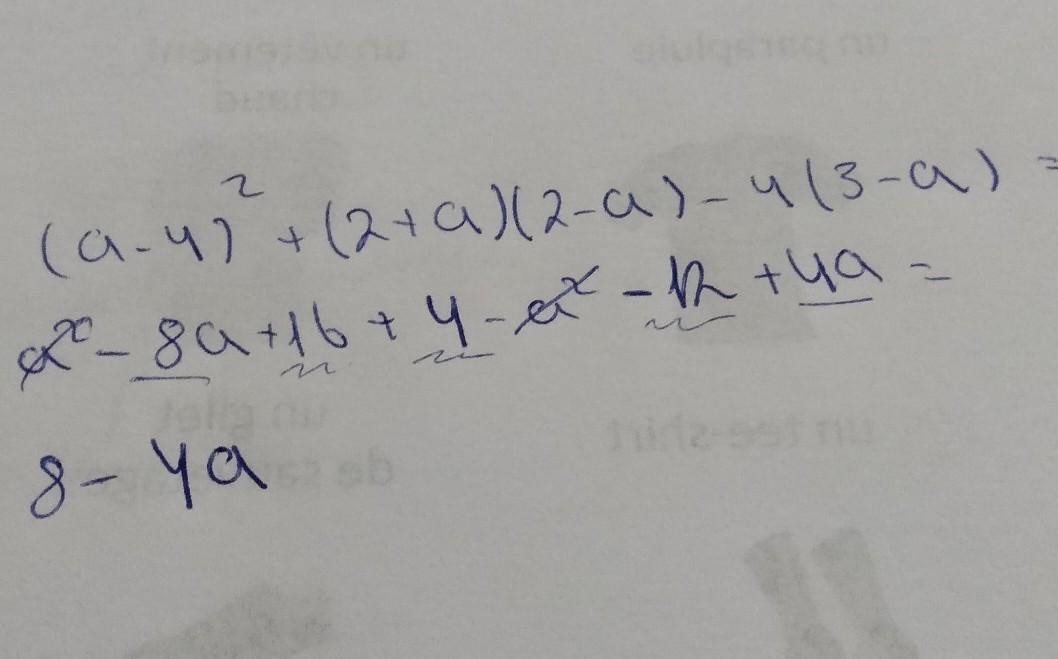 (a-4)² + (2+a)(2-a) - 4(3-a) =
a² - 8a + 16 + 4 - a² - 12 + 4a =
8 - 4a